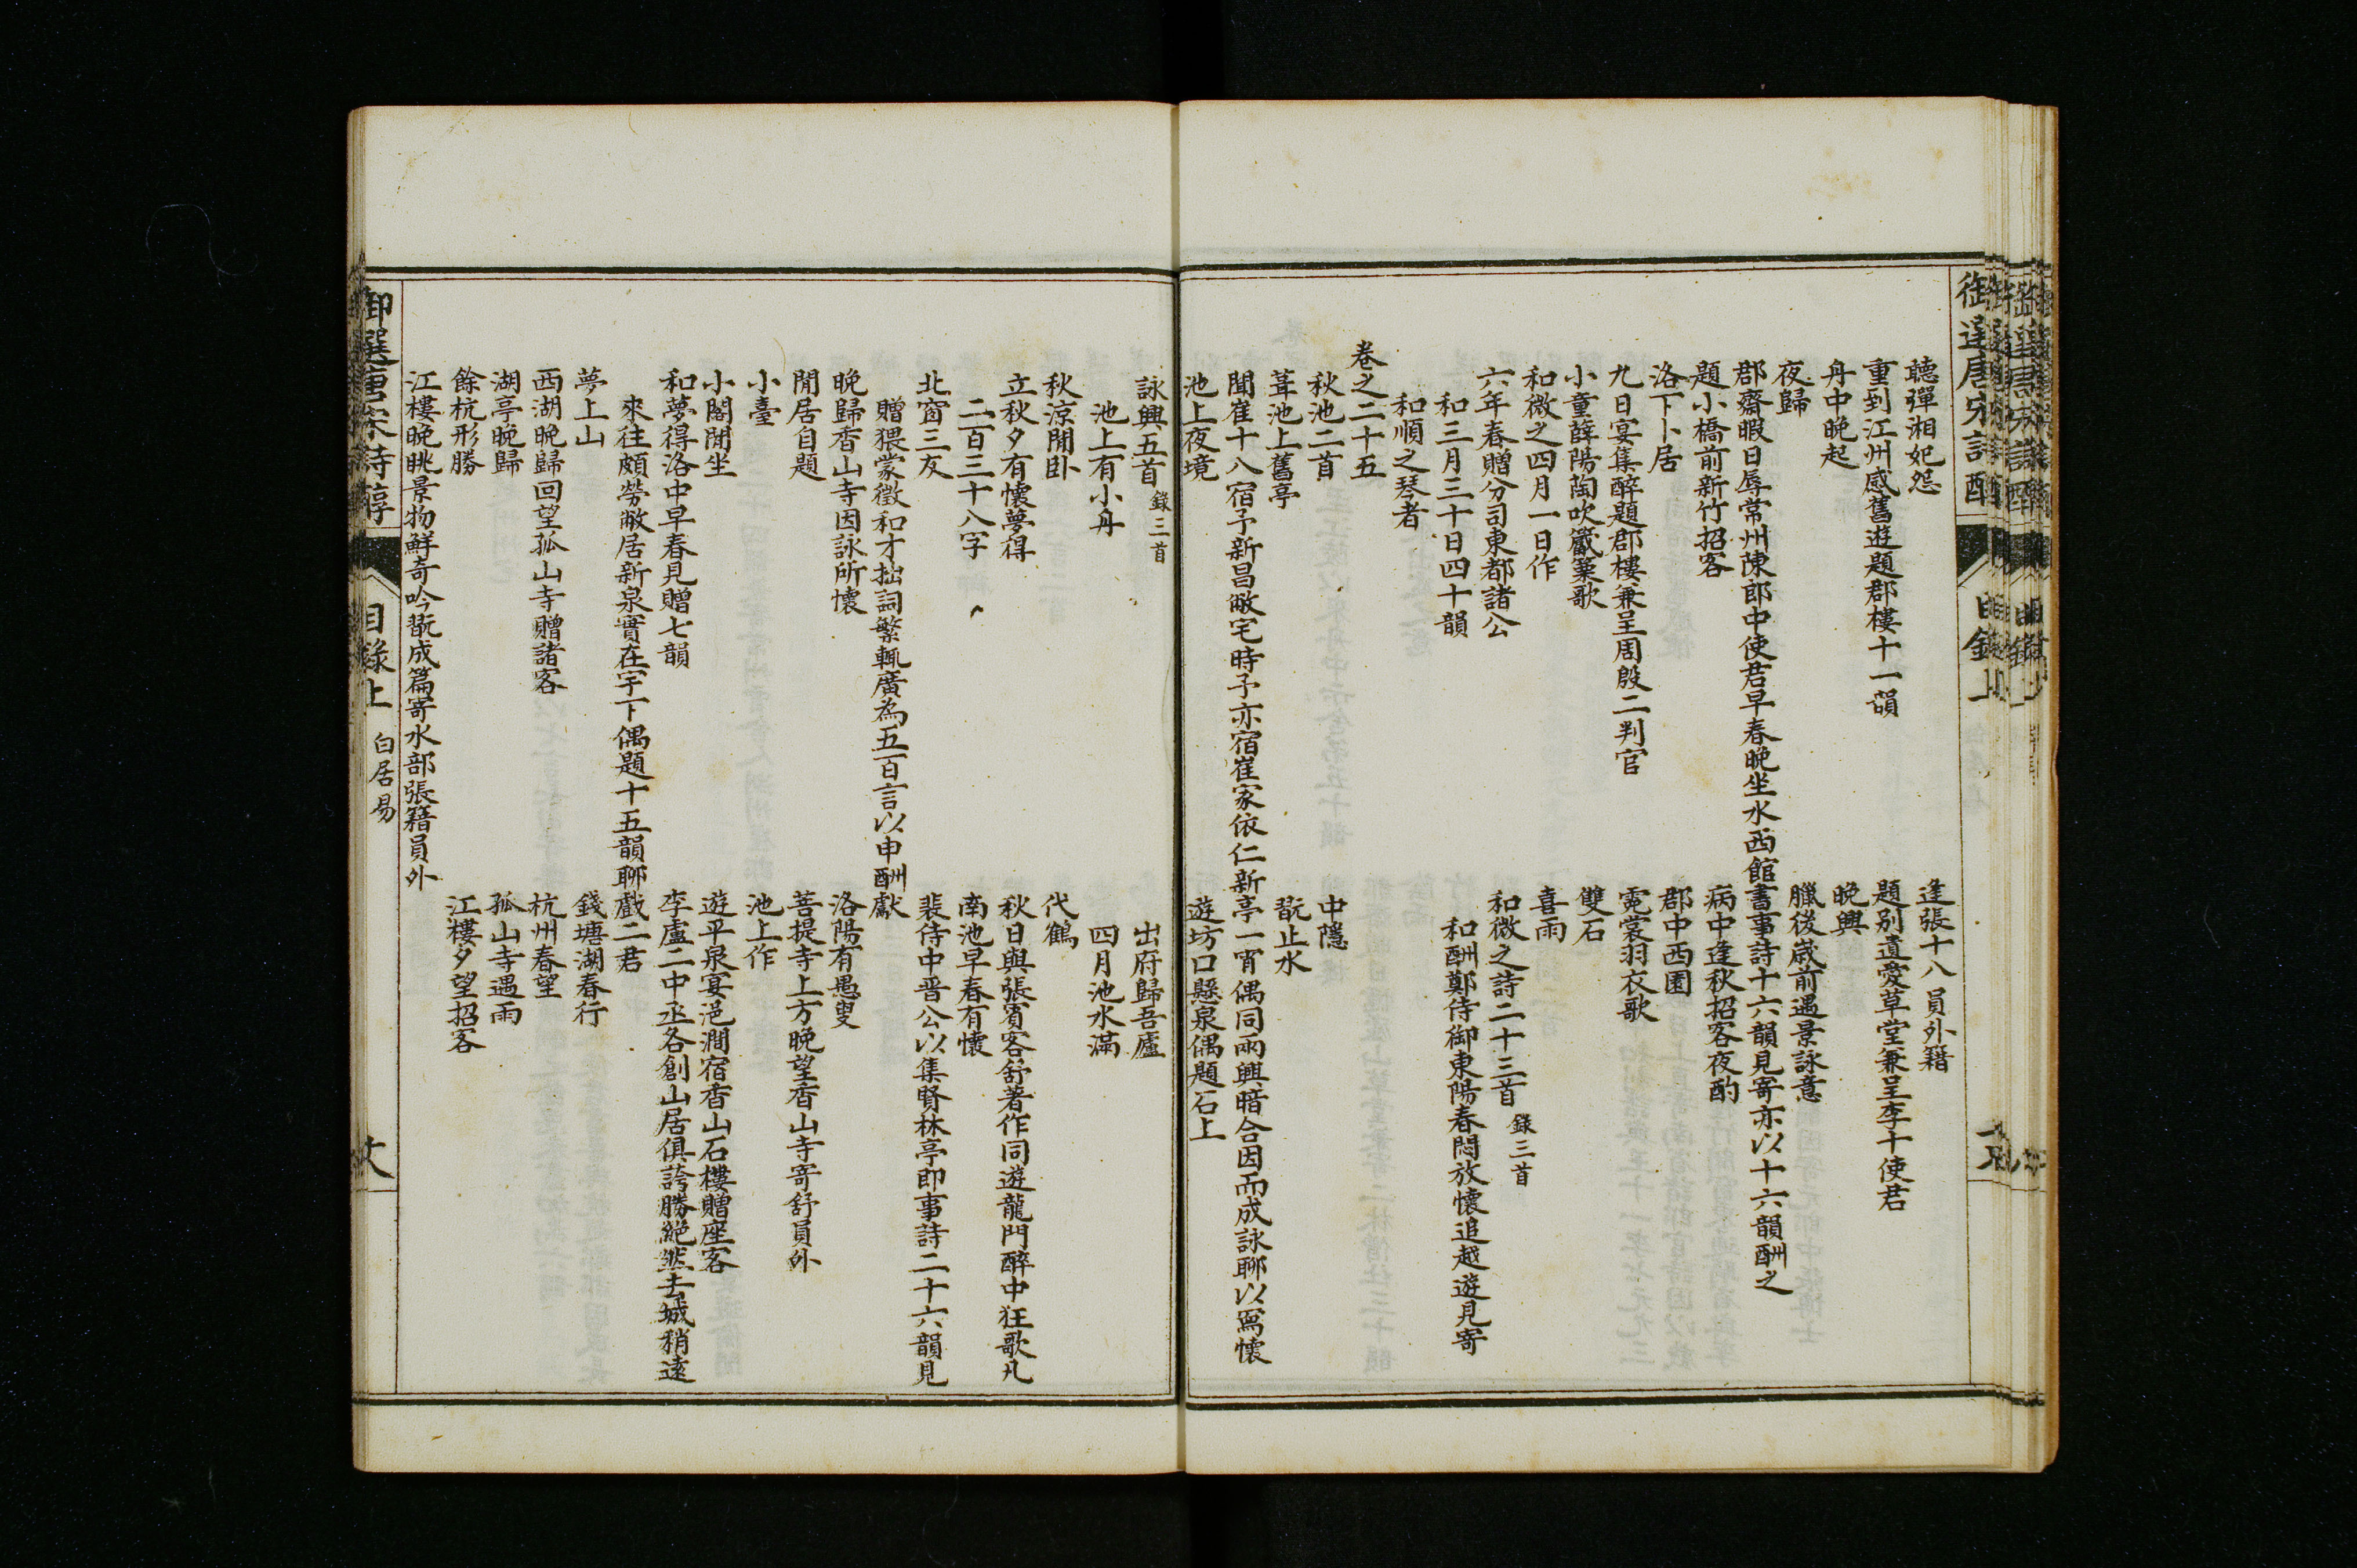 聽彈湘妃怨
逢張十八員外籍
重到江州感舊遊題郡樓十一韻
題別遺愛草堂兼呈李十使君
舟中晚起
晚興
夜歸
臘後歲前遇景詠意
郡齋暇日辱常州陳郎中使君早春晚坐水西館書事詩十六韻見寄亦以十六韻酬之
題小橋前新竹招客
病中逢秋招客夜酌
洛下卜居
郡中西園
九日宴集醉題郡樓兼呈周殷二判官
霓裳羽衣歌
小童薛陽陶吹觱篥歌
雙石
和微之四月一日作
喜雨
六年春贈分司東都諸公
和微之詩二十三首 錄三首
和三月三十日四十韻
和酬鄭侍御東陽春悶放懷追越遊見寄
和順之琴者
卷之二十五
秋池二首
中隱
葺池上舊亭
翫止水
聞崔十八宿予新昌敝宅時予亦宿崔家依仁新亭一宵偶同兩興暗合因而成詠聊以寫懷
池上夜境
遊坊口懸泉偶題石上
詠興五首 錄三首
出府歸吾廬
池上有小舟
四月池水滿
秋涼閒卧
代鶴
立秋夕有懷夢得
秋日與張賓客舒著作同遊龍門醉中狂歌凡
二百三十八字
南池早春有懷
北窗三友
裴侍中晉公以集賢林亭即事詩二十六韻見
贈猥蒙徵和才拙詞繁輒廣為五百言以申酬獻
晚歸香山寺因詠所懷
洛陽有愚叟
閒居自題
菩提寺上方晚望香山寺寄舒員外
小臺
池上作
小閣閒坐
遊平泉宴浥澗宿香山石樓贈座客
和夢得洛中早春見贈七韻
李盧二中丞各創山居俱誇勝絕然去城稍遠
來往頗勞敝居新泉實在宇下偶題十五韻聊戲二君
夢上山
錢塘湖春行
西湖晚歸回望孤山寺贈諸客
杭州春望
湖亭晚歸
孤山寺遇雨
餘杭形勝
江樓夕望招客
江樓晚眺景物鮮奇吟翫成篇寄水部張籍員外
御選唐宋詩醇
目錄上
白居易